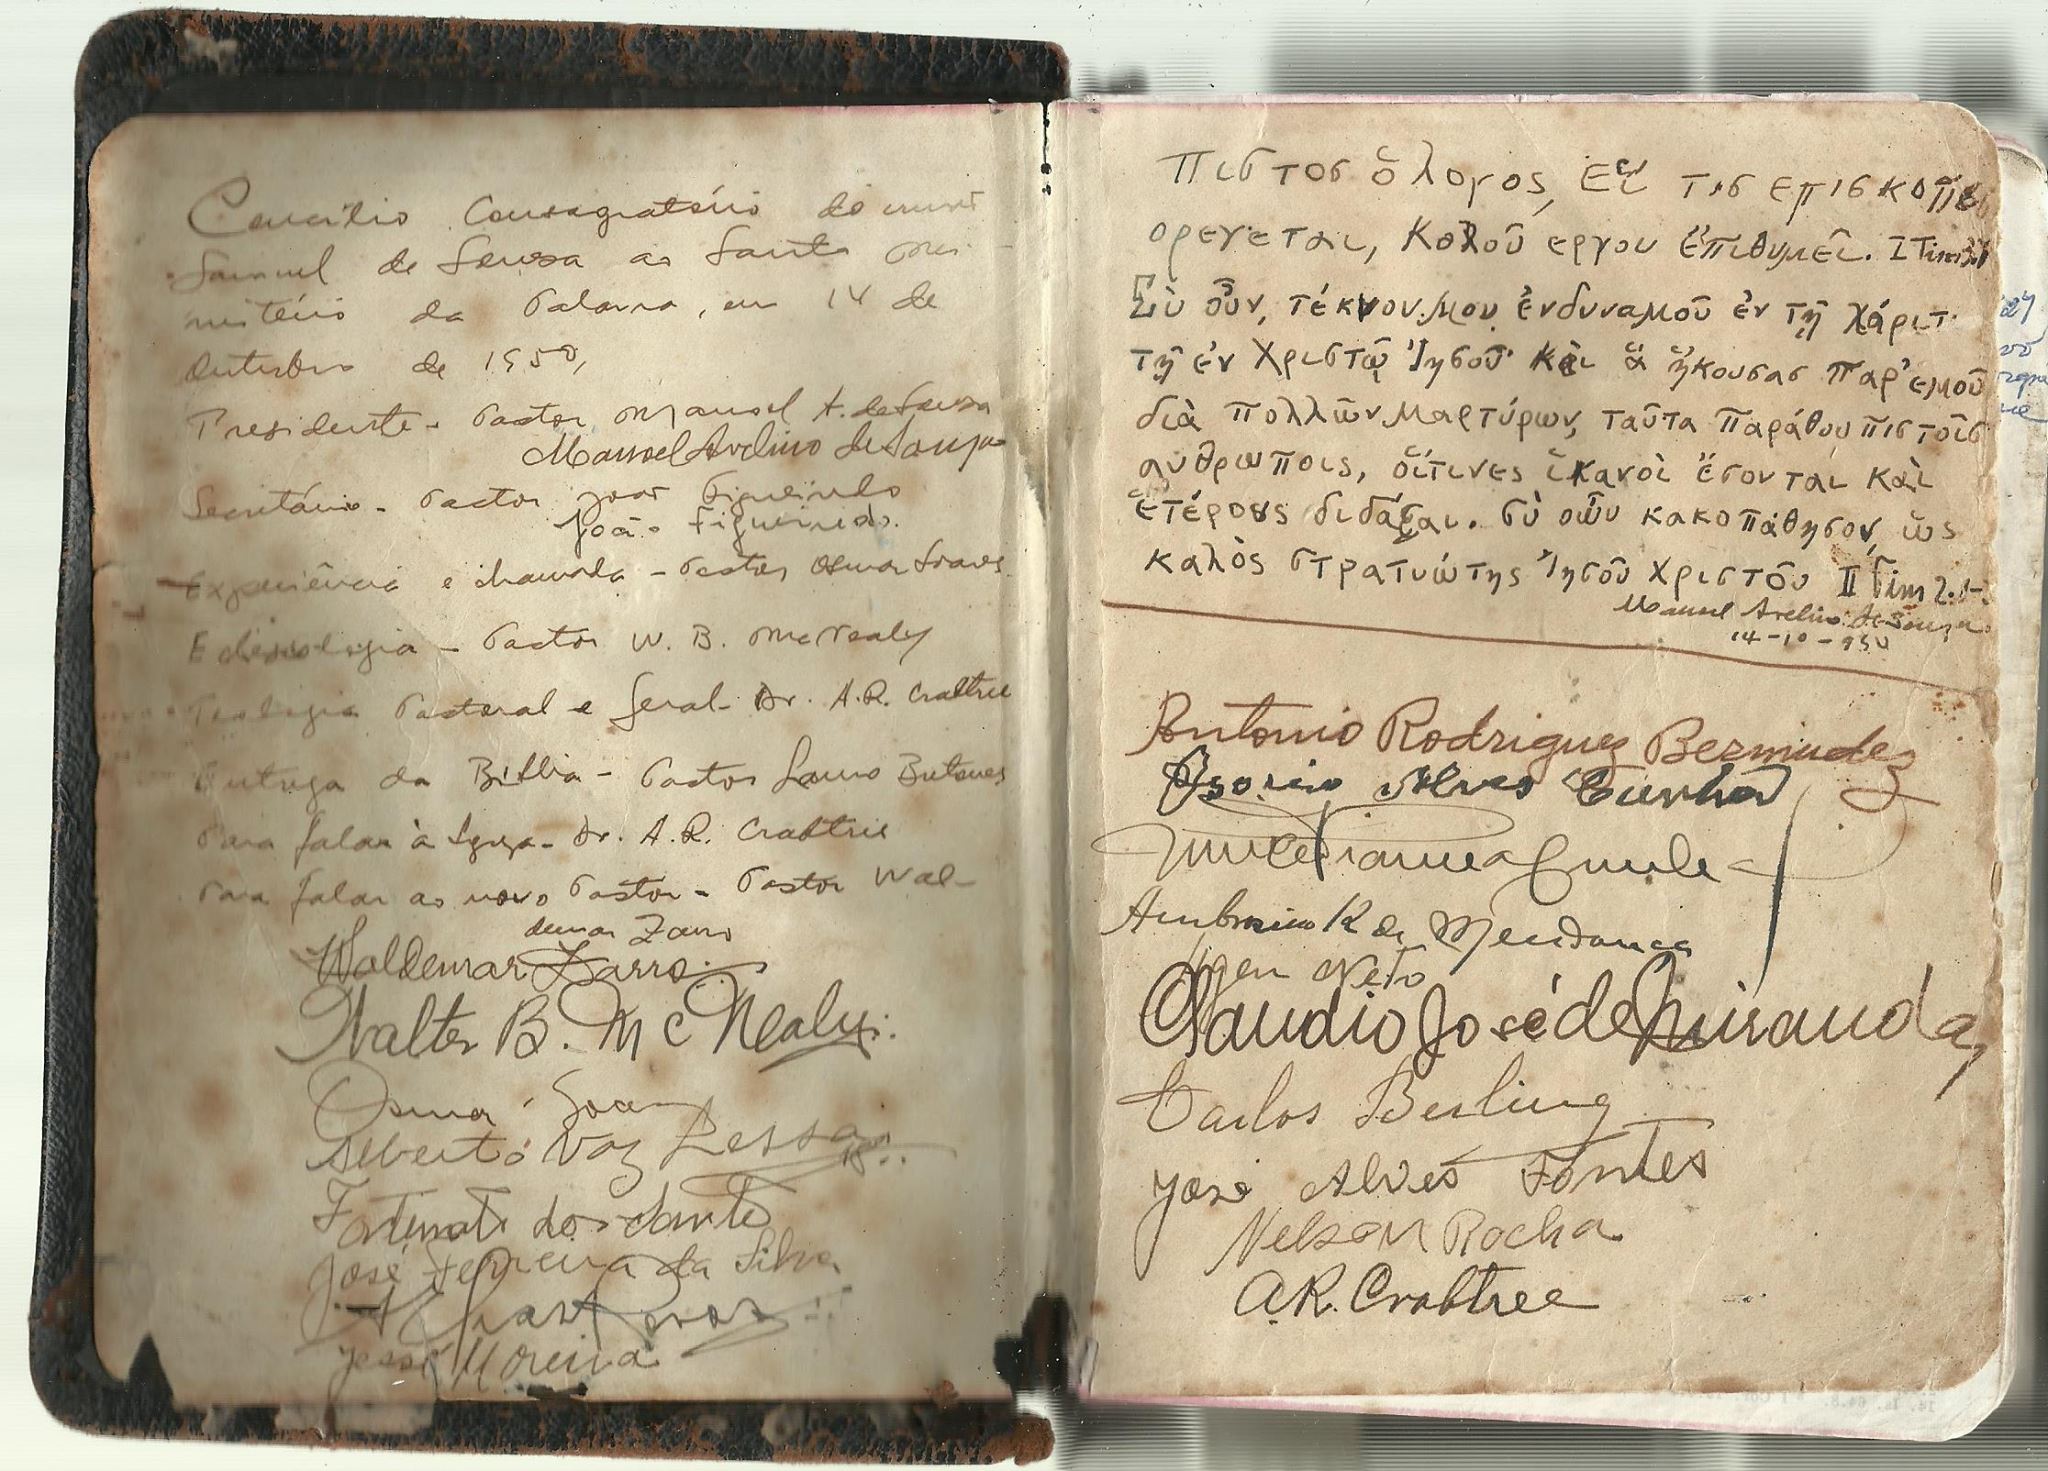 Concilio Consagratório do irmão
Samuel de Souza ao Santo Mi-
nistério da Palavra, em 14 de
Outubro de 1950,
Presidente - Pastor Manoel A. de Souza
Manoel Avelino de Souza
Secretário - Pastor João Figueiredo
João Figueiredo.
Experiência e chamada - Pastor Osmar Soares
Eclesiologia - Pastor W. B. McNealy
Teologia Pastoral e Geral - Dr. A.R. Crabtree
Entrega da Biblia - Pastor Lauro
Para falar à Igreja - Dr. A. R. Crabtree
Para falar ao novo Pastor - Pastor Wal-
demar Zarro
Waldemar Zarro.
Walter B. McNealy.
Osmar Soares
Alberto Vaz Lessa
Fortunato dos Santos
José Ferreira da Silva
Jessé Moreira
Πιστοσ ὅ λογος, Εἴ τισ επισκοπῆς
ορεγεται, Καλοῦ εργου ἔπιθυμεῖ. I Tim 3.1
Σὺ οὖν, τέκνον μου ἐνδυναμοῦ ἐν τῇ χάριτι
τῇ ἐν Χριστῷ Ἰησοῦ· καὶ ἅ ἤκουσασ παρ' ἐμοῦ
διὰ πολλῶν μαρτύρων, ταῦτα παράθου πιστοῖσ
ανθρωποις, οἵτινες ἱκανοὶ ἔσονται καὶ
ἑτέρους διδάξαι. σὺ οὖν κακοπάθησον, ὥς
καλὸς στρατιώτης Ἰησοῦ Χριστοῦ II Tim 2.1-
Manoel Avelino de Souza
14-10-950
Antonio Rodriguez Bermudez
Osorio Alves Cunha
Ambrosio R de Mendonça
Neto
Claudio José de Miranda,
Carlos Berling
José Alves Fontes
Nelson Rocha
A.R. Crabtree